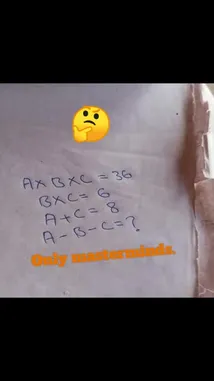 A x B x C = 36
B x C = 6
A + C = 8
A - B - C = ?
Only masterminds.